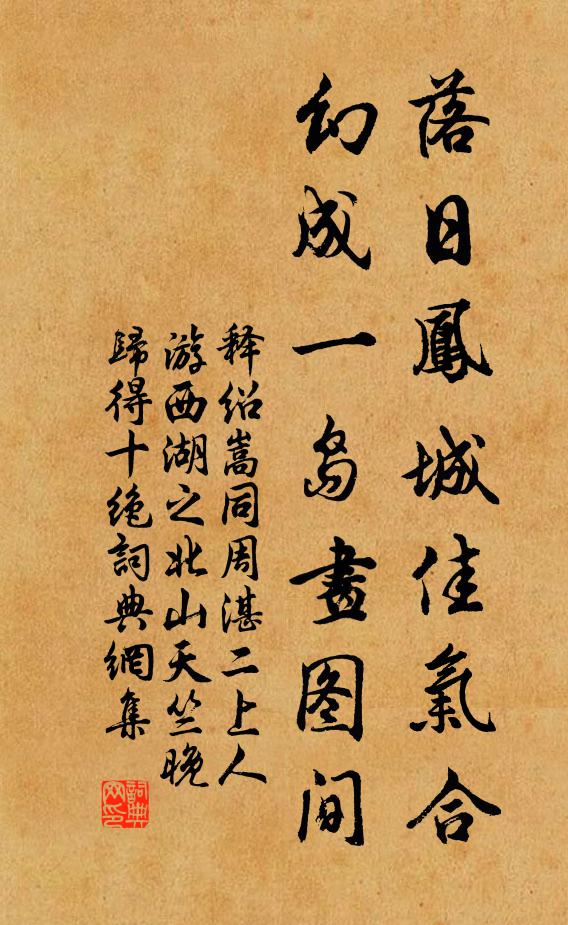 落日鳳城佳氣合
幻成一島畫图间
释绍嵩同周湛二上人
游西湖之北山天竺晚
歸得十绝詞典網集
詞典
网印